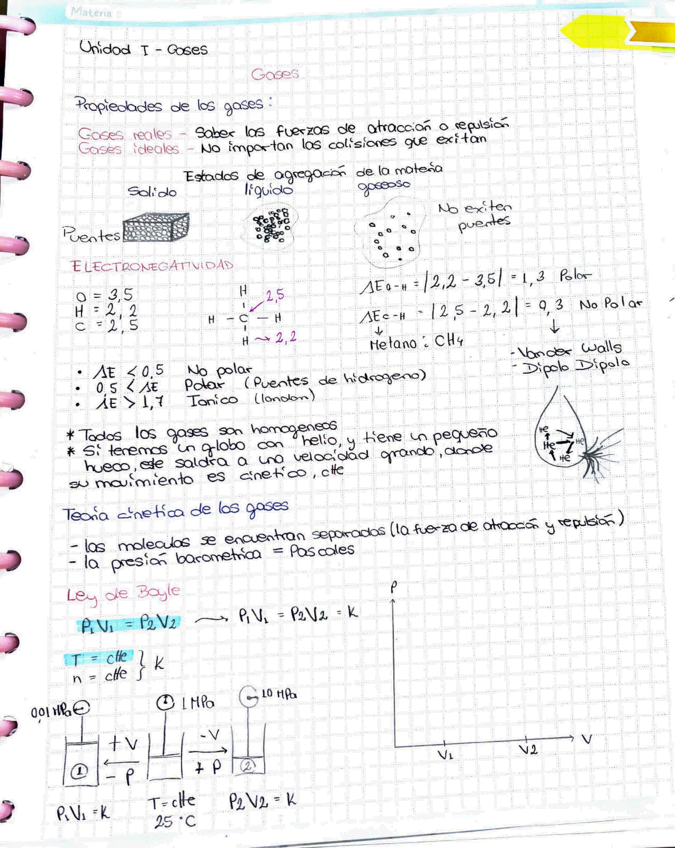 Materia:
Unidad I - Gases
Gases
Propiedades de los gases:
Gases reales - Saber las fuerzas de atracción o repulsión
Gases ideales - No importan las colisiones que exitan
Estados de agregación de la materia
Solido líquido gaseoso
Puentes
No exiten
puentes
ELECTRONEGATIVIDAD
O = 3,5
H = 2,2
C = 2,5
H
2,5
H - C - H
H → 2,2
ΔE O-H = |2,2 - 3,5| = 1,3 Polar
ΔE C-H = |2,5 - 2,2| = 0,3 No Polar
Metano: CH4
- Vander Walls
- Dipolo Dipolo
• ΔE < 0,5 No polar
• 0,5 < ΔE Polar (Puentes de hidrogeno)
• ΔE > 1,7 Ionico (london)
* Todos los gases son homogeneos
* Si tenemos un globo con helio, y tiene un pequeño
hueco, este saldra a una velocidad grande, donde
su movimiento es cinetico, ctte
He
He
He
He
Teoria cinetica de los gases
- las moleculas se encuentran separadas (la fuerza de atracción y repulsión)
- la presión barometrica = Pascales
Ley de Boyle
P1V1 = P2V2 → P1V1 = P2V2 = K
T = ctte
n = ctte } K
P
V1 V2 V
0,01 MPa 1 MPa 10 MPa
+V -V
- P + P
1 2
P1V1 = K T = ctte P2V2 = K
25 °C